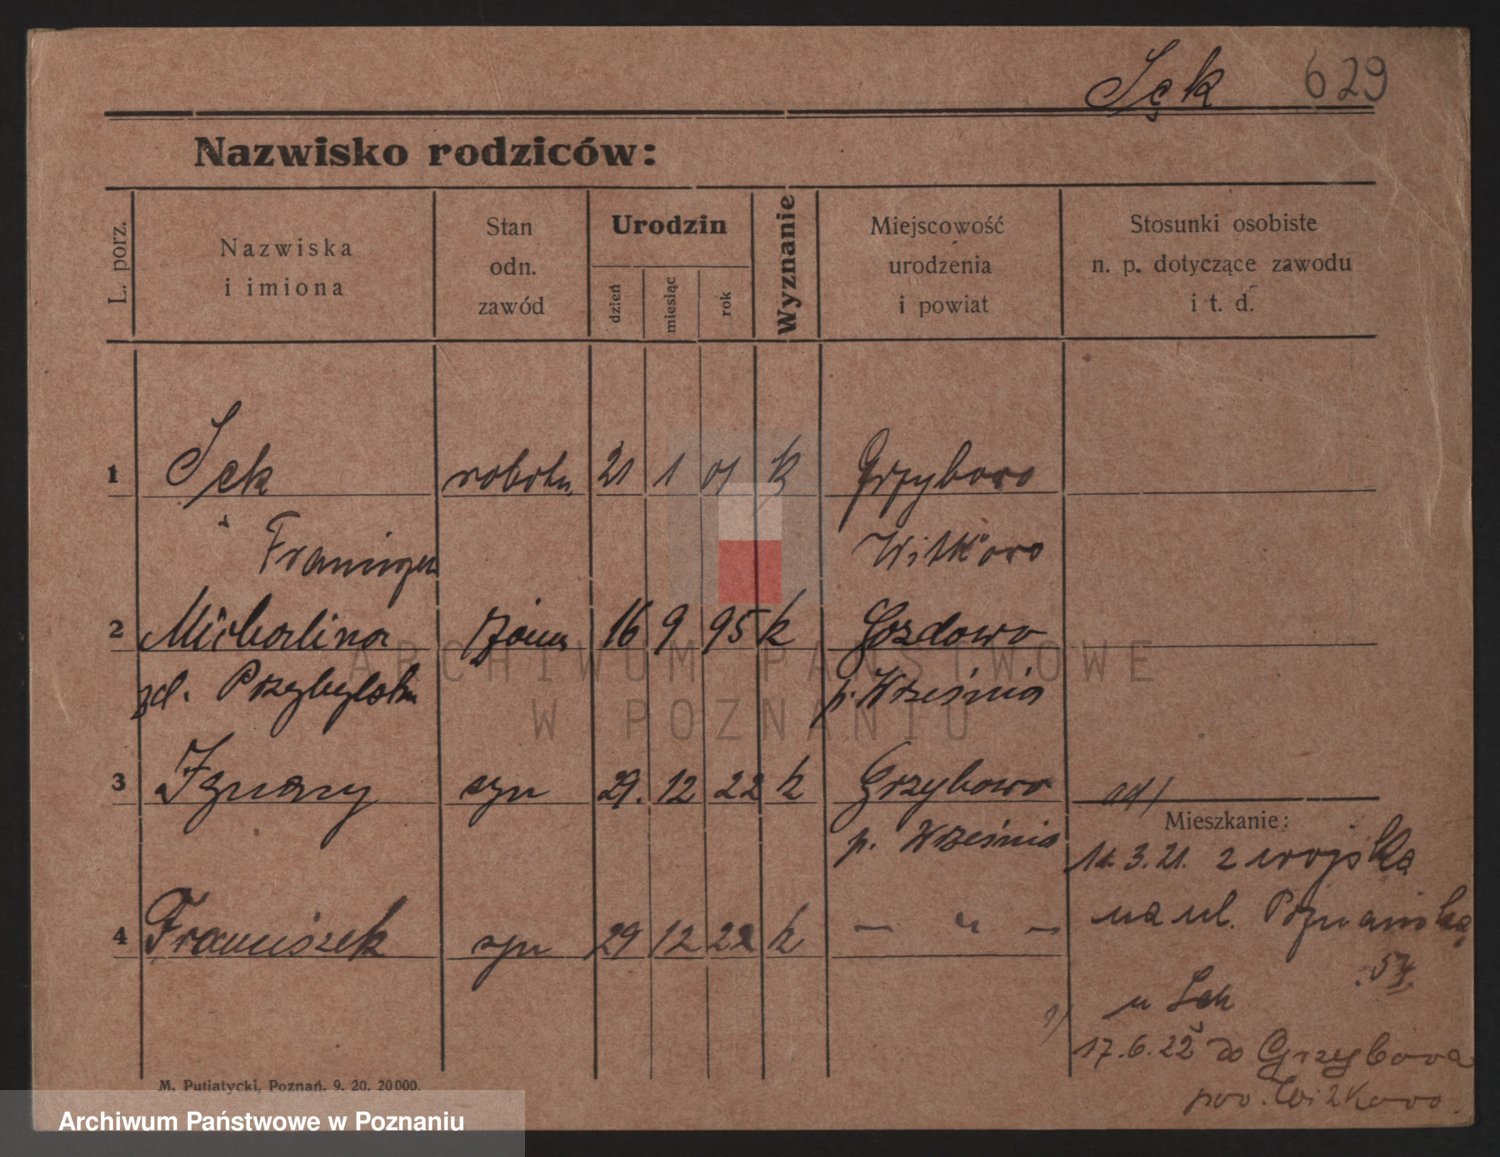 Sęk 629
Nazwisko rodziców:
L. porz.
Nazwiska
i imiona
Stan
odn.
zawód
Urodzin
dzień
miesiąc
rok
Wyznanie
Miejscowość
urodzenia
i powiat
Stosunki osobiste
n. p. dotyczące zawodu
i t. d.
1 Sęk robotn. 21 1 01 k Grzybowo
Witkowo
2 Michalina żona 16 9 95 k Gozdowo
p. Września
3 Ignacy syn 29. 12 22 k Grzybowo
p. Września
4 Franciszek syn 29 12 22 k — " —
ad 1
Mieszkanie:
3. 21. z wojska
na ul. Poznańska
u Sęk
17. 6. 22 do Grzybowa
pow. Witkowo.
M. Putiatycki, Poznań. 9. 20. 20000.
ARCHIWUM PAŃSTWOWE
W POZNANIU
Archiwum Państwowe w Poznaniu